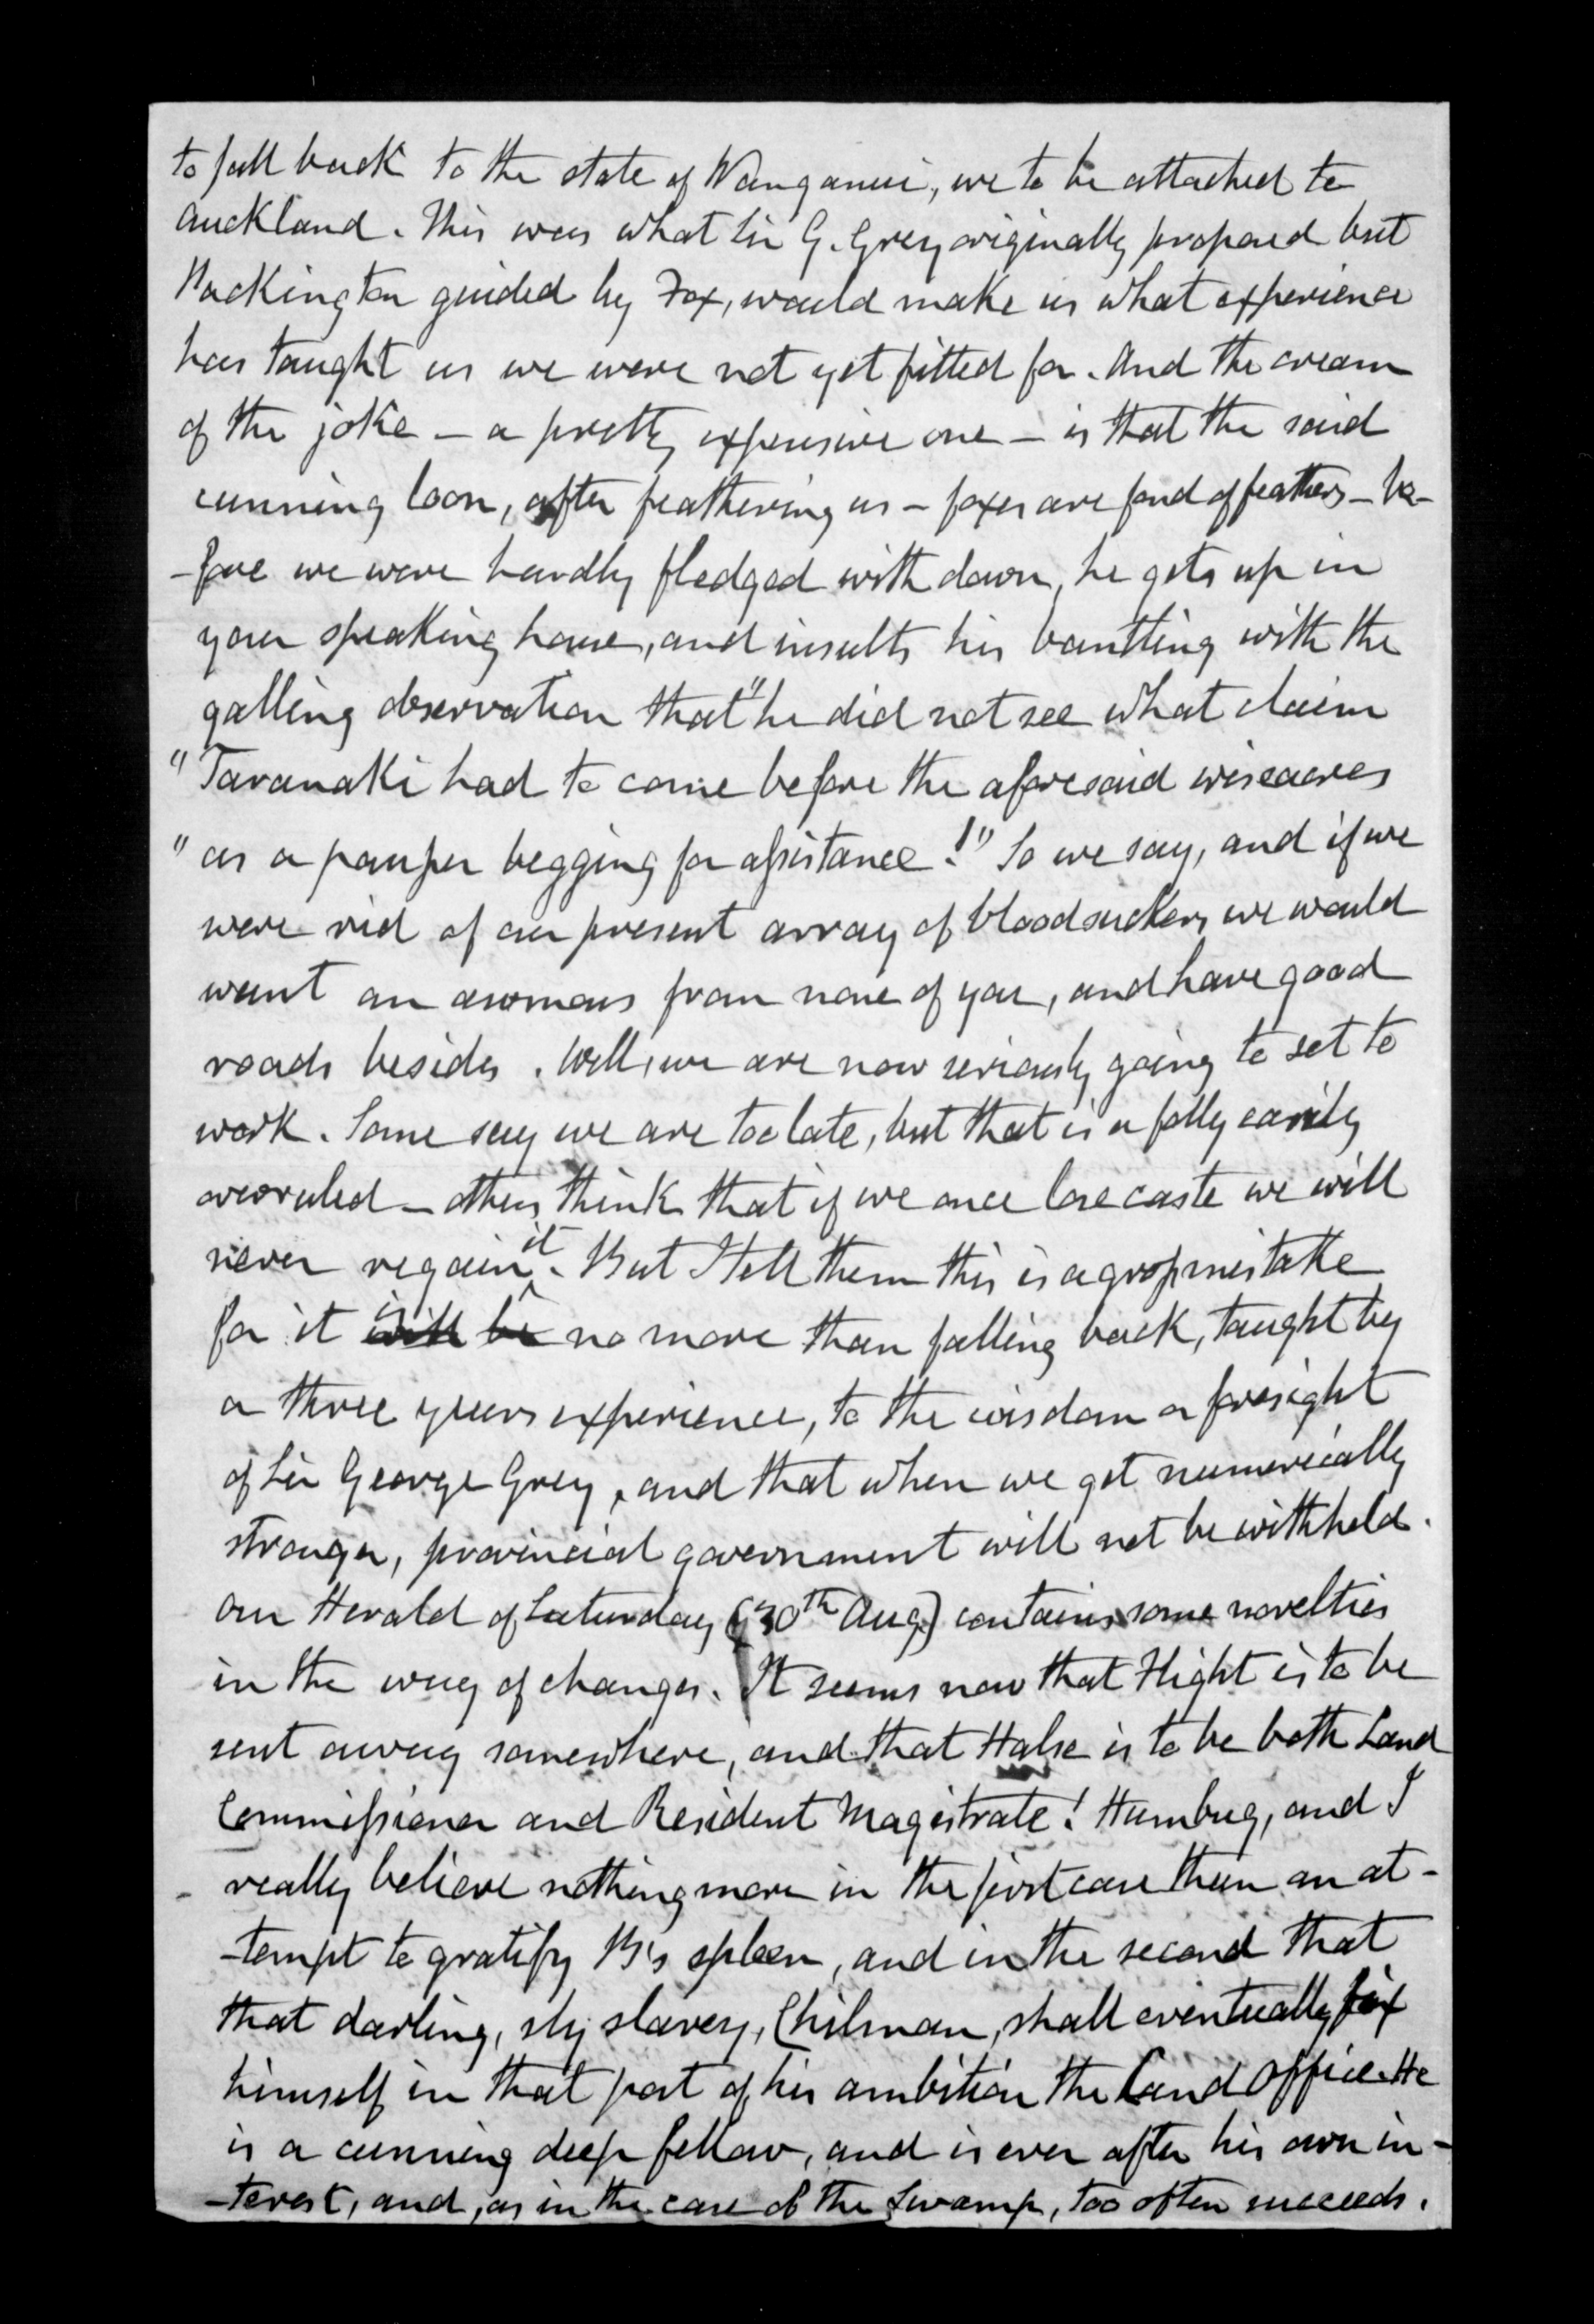 to fall back to the state of Wanganui, we to be attached to
Auckland. This was what Sir G. Grey originally proposed but
Packington guided by Fox, would make us what experience
has taught us we were not yet fitted for. And the cream
of the joke – a pretty expensive one – is that the said
cunning loon, after feathering us – foxes are fond of feathers – be-
-fore we were hardly fledged with down, he gets up in
your speaking house, and insults his bantling with the
galling observation that "he did not see what claim
"Taranaki had to come before the aforesaid wiseacres
"as a pauper begging for assistance!" So we say, and if we
were rid of our present array of bloodsuckers we would
want an from none of you, and have good
roads besides. Well, we are now seriously going to set to
work. Some say we are too late, but that is a folly easily
overruled – others think that if we once lose caste we will
never regain it. But I tell them this is a gross mistake
for it is ~~will be~~ no more than falling back, taught by
a three years experience, to the wisdom or foresight
of Sir George Grey, and that when we get numerically
stronger, provincial government will not be withheld.
Our Herald of Saturday (30th Aug) contains some novelties
in the way of changes. It seems now that Flight is to be
sent away somewhere, and that Halse is to be both Land
Commissioner and Resident Magistrate! Humbug, and I
really believe nothing more in the first case than an at-
-tempt to gratify B's spleen, and in the second that
that darling, sly slavery, Chilman, shall eventually fix
himself in that post of his ambition the Land Office. He
is a cunning deep fellow, and is ever after his own in-
-terest, and, as in the case of the Swamp, too often succeeds.